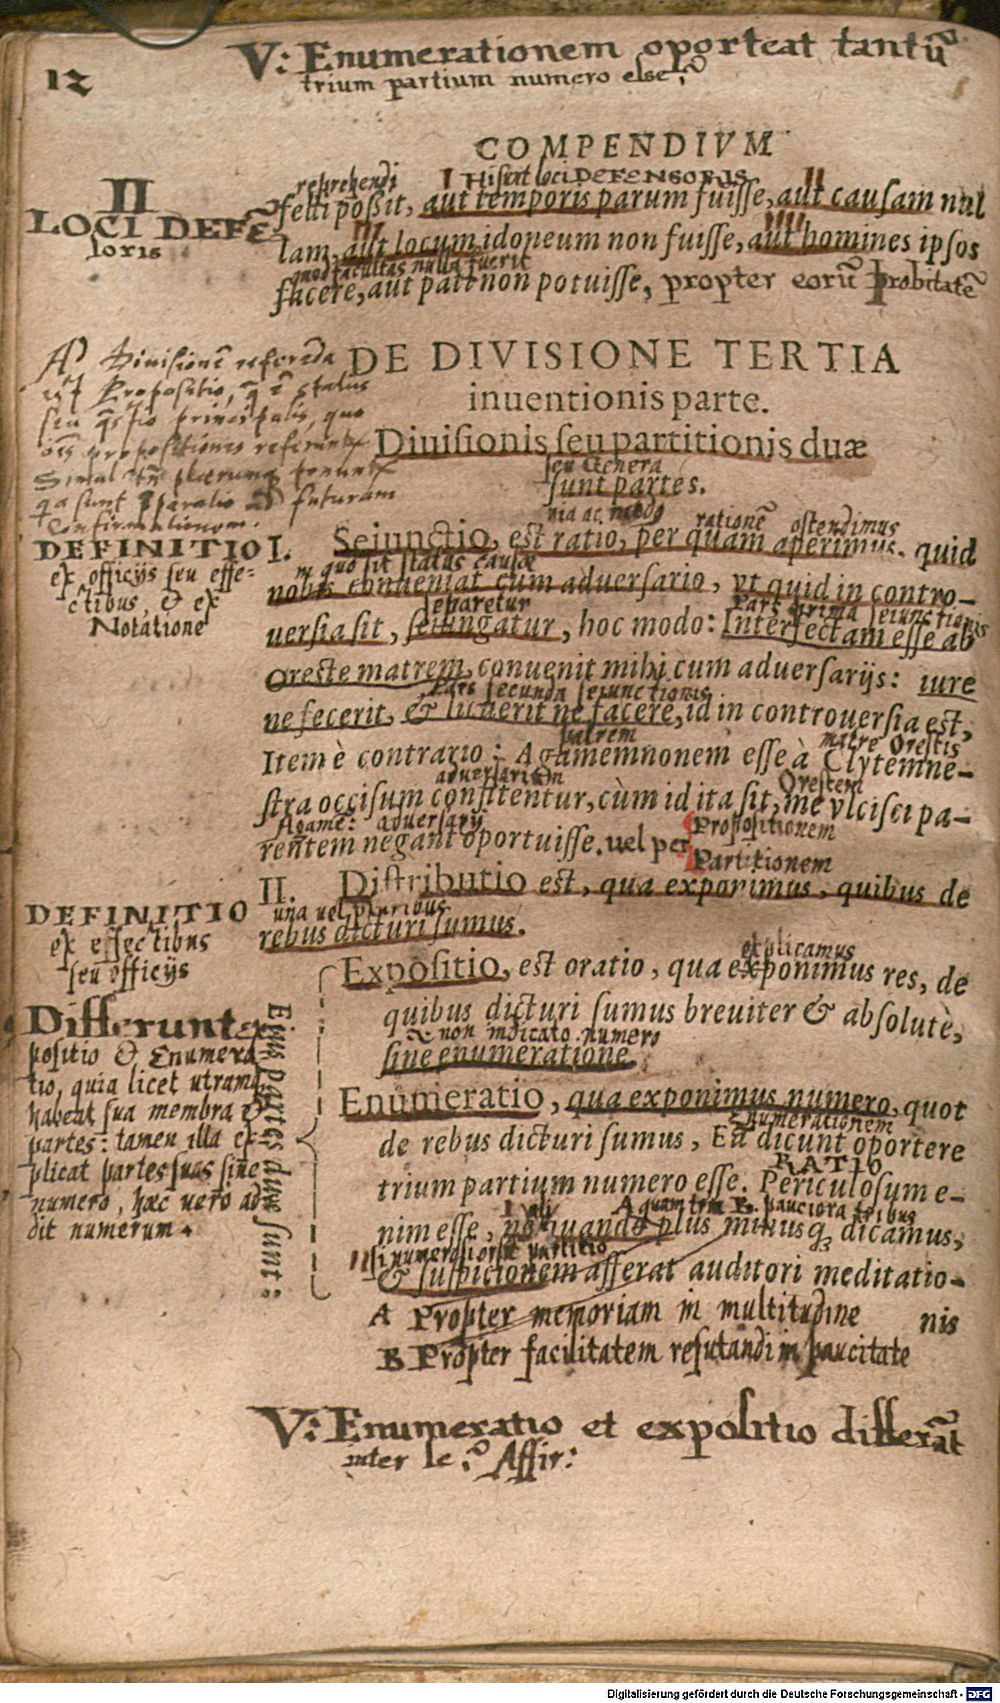 V: Enumerationem oporteat tantũ
12
trium partium numero esse?
COMPENDIVM
reprehendi I Hi sunt loci DEFENSORIS II
II
LOCI DEFẼ
soris
felli poßit, aut temporis parum fuisse, aut causam nul
III IIII
lam, aut locum idoneum non fuisse, aut homines ipsos
quod facultas nulla fuerit
facere, aut pati non potuisse, propter eorũ probitatẽ
DE DIVISIONE TERTIA
inuentionis parte.
Ad Diuisionẽ referenda
Propositio, status
seu principalis, quo
propositiones
Simul
sunt futuram
Confirmationem.
Diuisionis seu partitionis duæ
seu Genera
sunt partes.
uia ac modo rationẽ ostendimus
DEFINITIO
ex officijs seu effe-
ctibus, & ex
Notatione
I. Seiunctio, est ratio, per quam aperimus, quid
in quo sit status causæ
nobis conueniat cum aduersario, vt quid in contro-
separetur Pars prima seiunctionis
uersia sit, seiungatur, hoc modo: Interfectam esse ab
Oreste matrem, conuenit mihi cum aduersarijs: iure
Pars secunda seiunctionis
ne fecerit, & licuerit ne facere, id in controuersia est,
patrem matre Orestis
Item è contrario: Agamemnonem esse à Clytemne-
aduersarium Orestem
stra occisum confitentur, cùm id ita sit, me vlcisci pa-
Agamẽ: aduersarij
rentem negant oportuisse. uel per
Propositionem
Partitionem
II. Distributio est, qua exponimus, quibus de
una uel pluribus
rebus dicturi sumus.
DEFINITIO
ex effectibus
seu officijs
explicamus
Expositio, est oratio, qua exponimus res, de
quibus dicturi sumus breuiter & absolutè,
& non indicato numero
sine enumeratione.
Differunt
positio & Enumera
tio, quia licet utramq;
habeat sua membra &
partes: tamen illa ex-
plicat partes suas sine
numero, hæc uero ad
dit numerum.
Eius partes duæ sunt:
Enumeratio, qua exponimus numero, quot
Enumerationem
de rebus dicturi sumus, Eã dicunt oportere
RATIO
trium partium numero esse. Periculosum e-
I A quam trm B. pauciora tribus
nim esse, ne quando plus minusq; dicamus,
II si numerosior sit partitio
& suspicionem afferat auditori meditatio-
nis
A Propter memoriam in multitudine
B Propter facilitatem refutandi in paucitate
V: Enumeratio et expositio differãt
inter se? Affir:
Digitalisierung gefördert durch die Deutsche Forschungsgemeinschaft - DFG